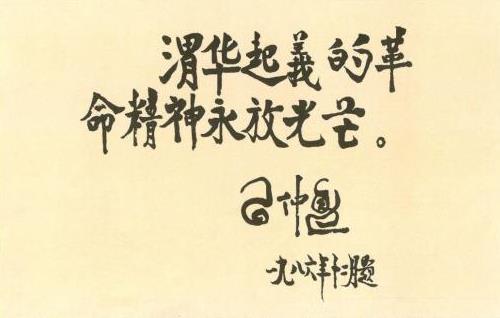 渭华起義的革
命精神永放光芒。
习仲勋
一九八六年十二月題